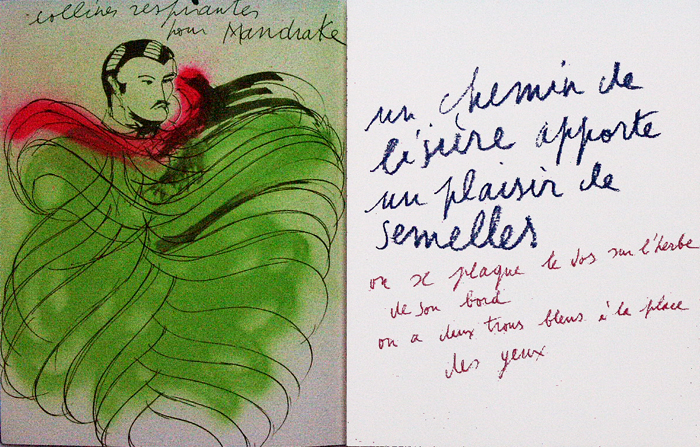 collines respirantes
pour Mandrake
un chemin de
lisière apporte
un plaisir de
semelles
on se plaque le dos sur l'herbe
de son bord
on a deux trous bleus à la place
des yeux